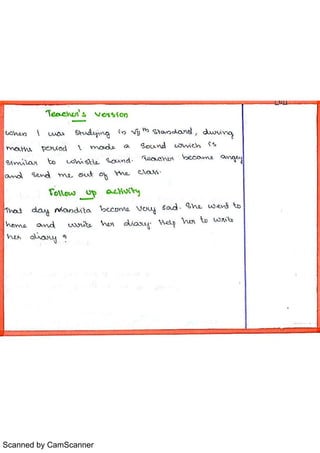 Teacher's version
When I was studying in VIIth standard, during
maths period I made a sound which is
similar to whistle sound. Teacher became angry
and send me out of the class.
Follow up activity
That day Nandita become very sad. She went to
home and write her diary. Help her to write
her diary ?
Scanned by CamScanner